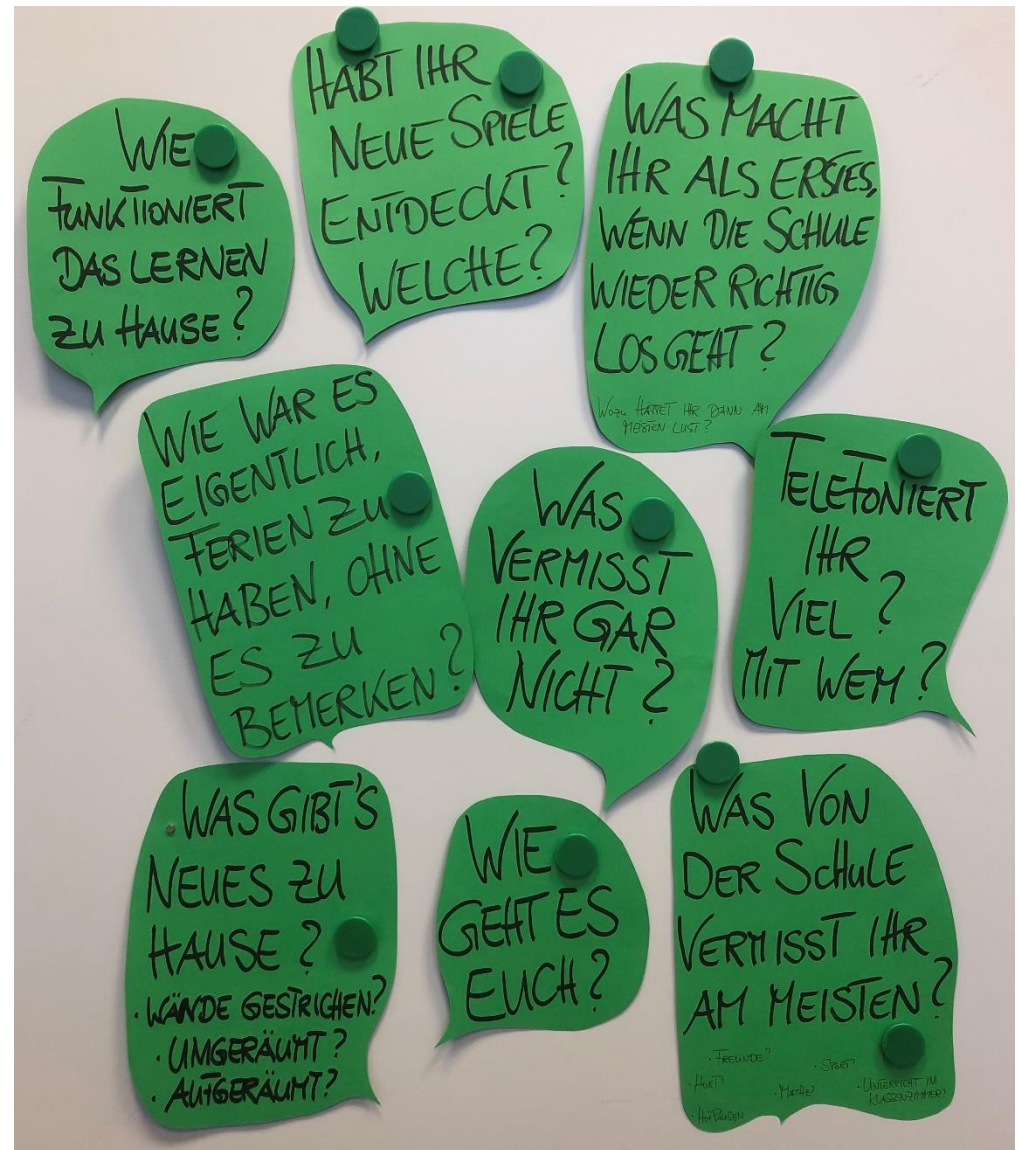 WIE
FUNKTIONIERT
DAS LERNEN
ZU HAUSE?
HABT IHR
NEUE SPIELE
ENTDECKT?
WELCHE?
WAS MACHT
IHR ALS ERSTES,
WENN DIE SCHULE
WIEDER RICHTIG
LOS GEHT?
WOZU HÄTTET IHR DANN AM
MEISTEN LUST?
WIE WAR ES
EIGENTLICH,
FERIEN ZU
HABEN, OHNE
ES ZU
BEMERKEN?
WAS
VERMISST
IHR GAR
NICHT?
TELEFONIERT
IHR
VIEL?
MIT WEM?
WAS GIBT'S
NEUES ZU
HAUSE?
· WÄNDE GESTRICHEN?
· UMGERÄUMT?
· AUFGERÄUMT?
WIE
GEHT ES
EUCH?
WAS VON
DER SCHULE
VERMISST IHR
AM MEISTEN?
· FREUNDE?
· SPORT?
· HORT?
· MATHE?
· UNTERRICHT IM
KLASSENZIMMER?
· HOFPAUSEN